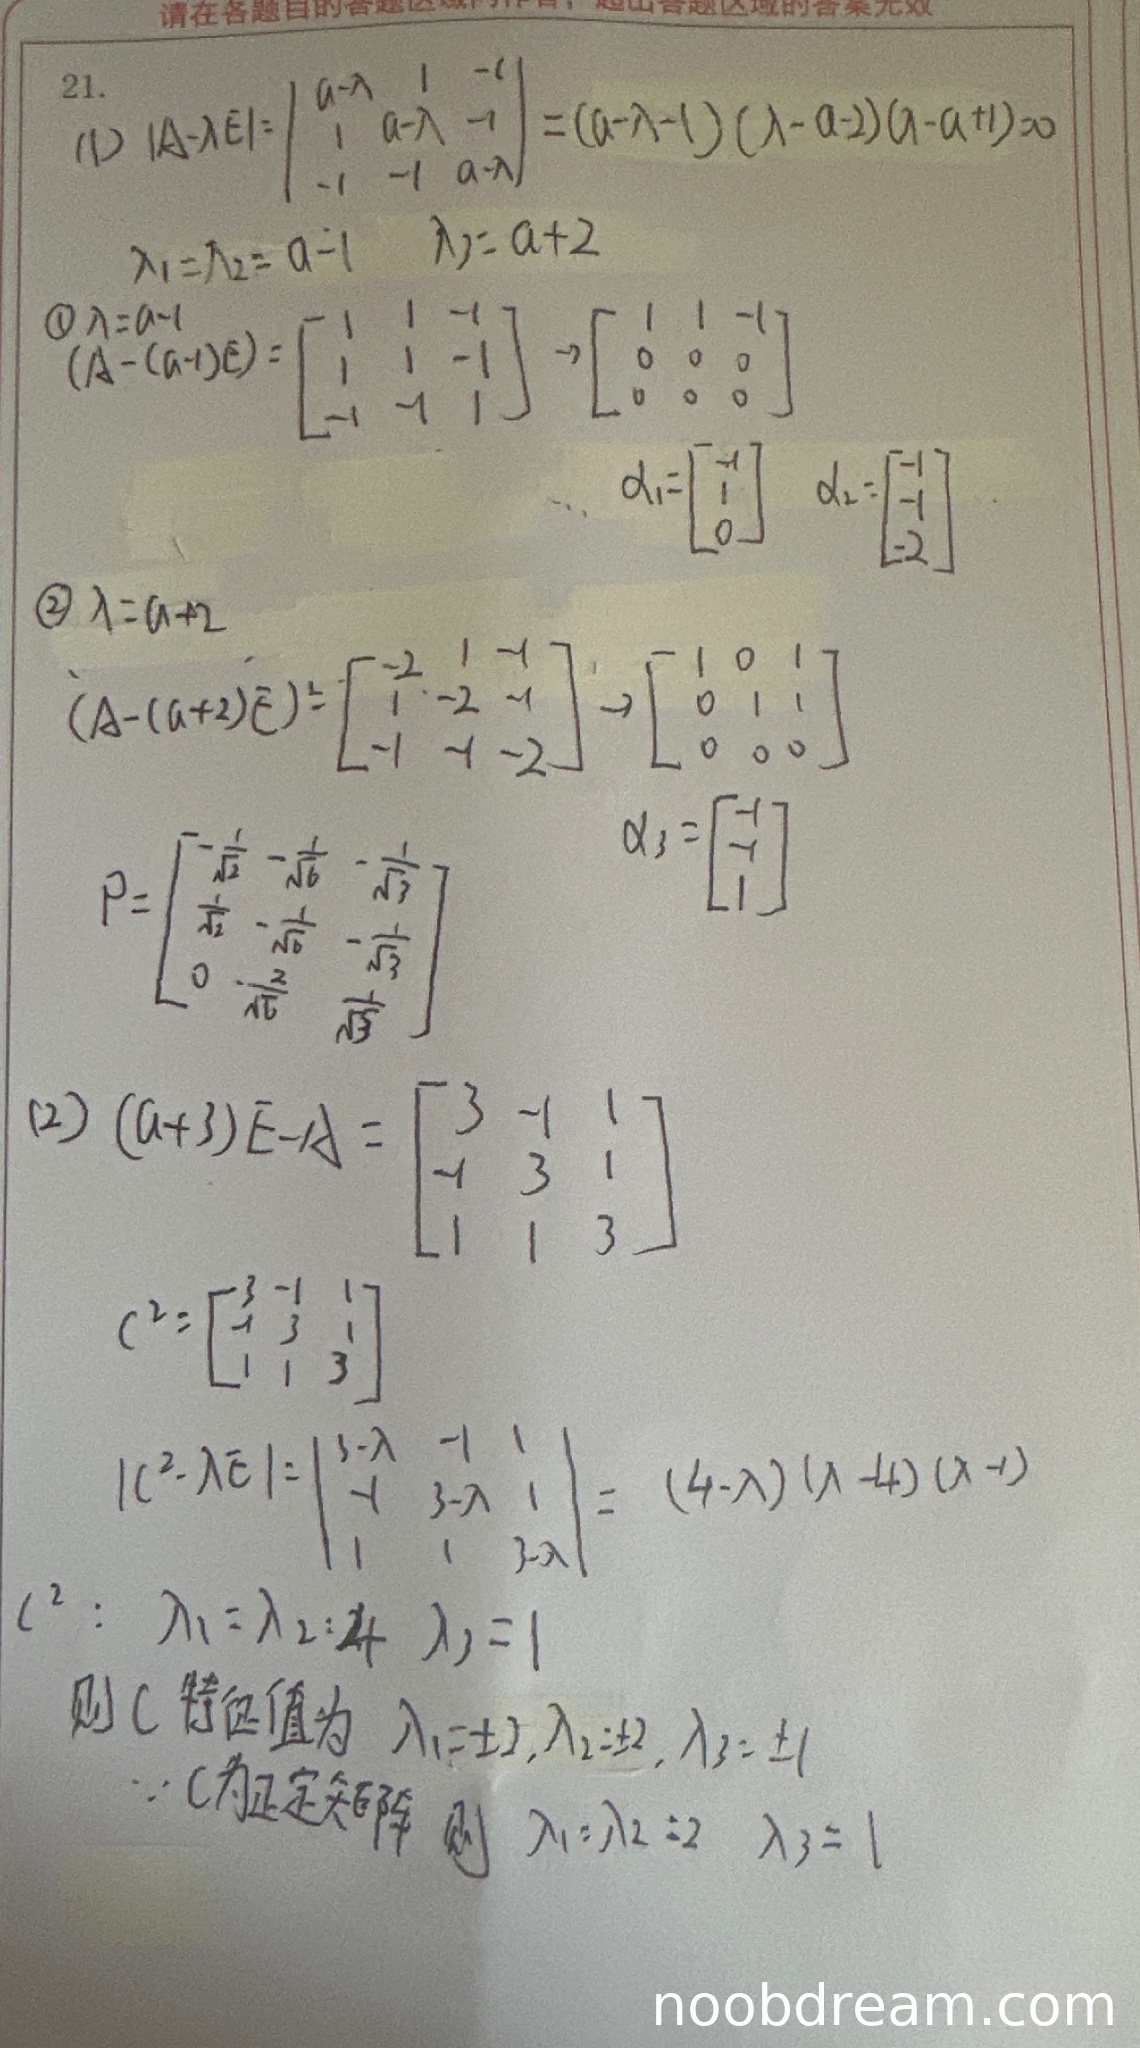 请在各题目的答题区域内作答，超出答题区域的答案无效
21.
(1) |A-λE| = | a-λ 1 -1 ; 1 a-λ -1 ; -1 -1 a-λ | = (a-λ-1)(λ-a-2)(λ-a+1)=0
λ₁=λ₂= a-1 λ₃= a+2
① λ=a-1
(A-(a-1)E) = [ 1 1 -1 ; 1 1 -1 ; -1 -1 1 ] → [ 1 1 -1 ; 0 0 0 ; 0 0 0 ]
α₁= [ -1 ; 1 ; 0 ] α₂= [ -1 ; -1 ; -2 ]
② λ=a+2
(A-(a+2)E) = [ -2 1 -1 ; 1 -2 -1 ; -1 -1 -2 ] → [ 1 0 1 ; 0 1 1 ; 0 0 0 ]
α₃= [ -1 ; -1 ; 1 ]
P= [ -1/√2 -1/√6 -1/√3 ; 1/√2 -1/√6 -1/√3 ; 0 -2/√6 1/√3 ]
(2) (a+3)E-A = [ 3 -1 1 ; -1 3 1 ; 1 1 3 ]
C²= [ 3 -1 1 ; -1 3 1 ; 1 1 3 ]
|C²-λE|= | 3-λ -1 1 ; -1 3-λ 1 ; 1 1 3-λ | = (4-λ)(λ-4)(λ-1)
C²: λ₁=λ₂=4 λ₃=1
则C特征值为 λ₁=±2, λ₂=±2, λ₃=±1
∵C为正定矩阵 则 λ₁=λ₂=2 λ₃=1
noobdream.com